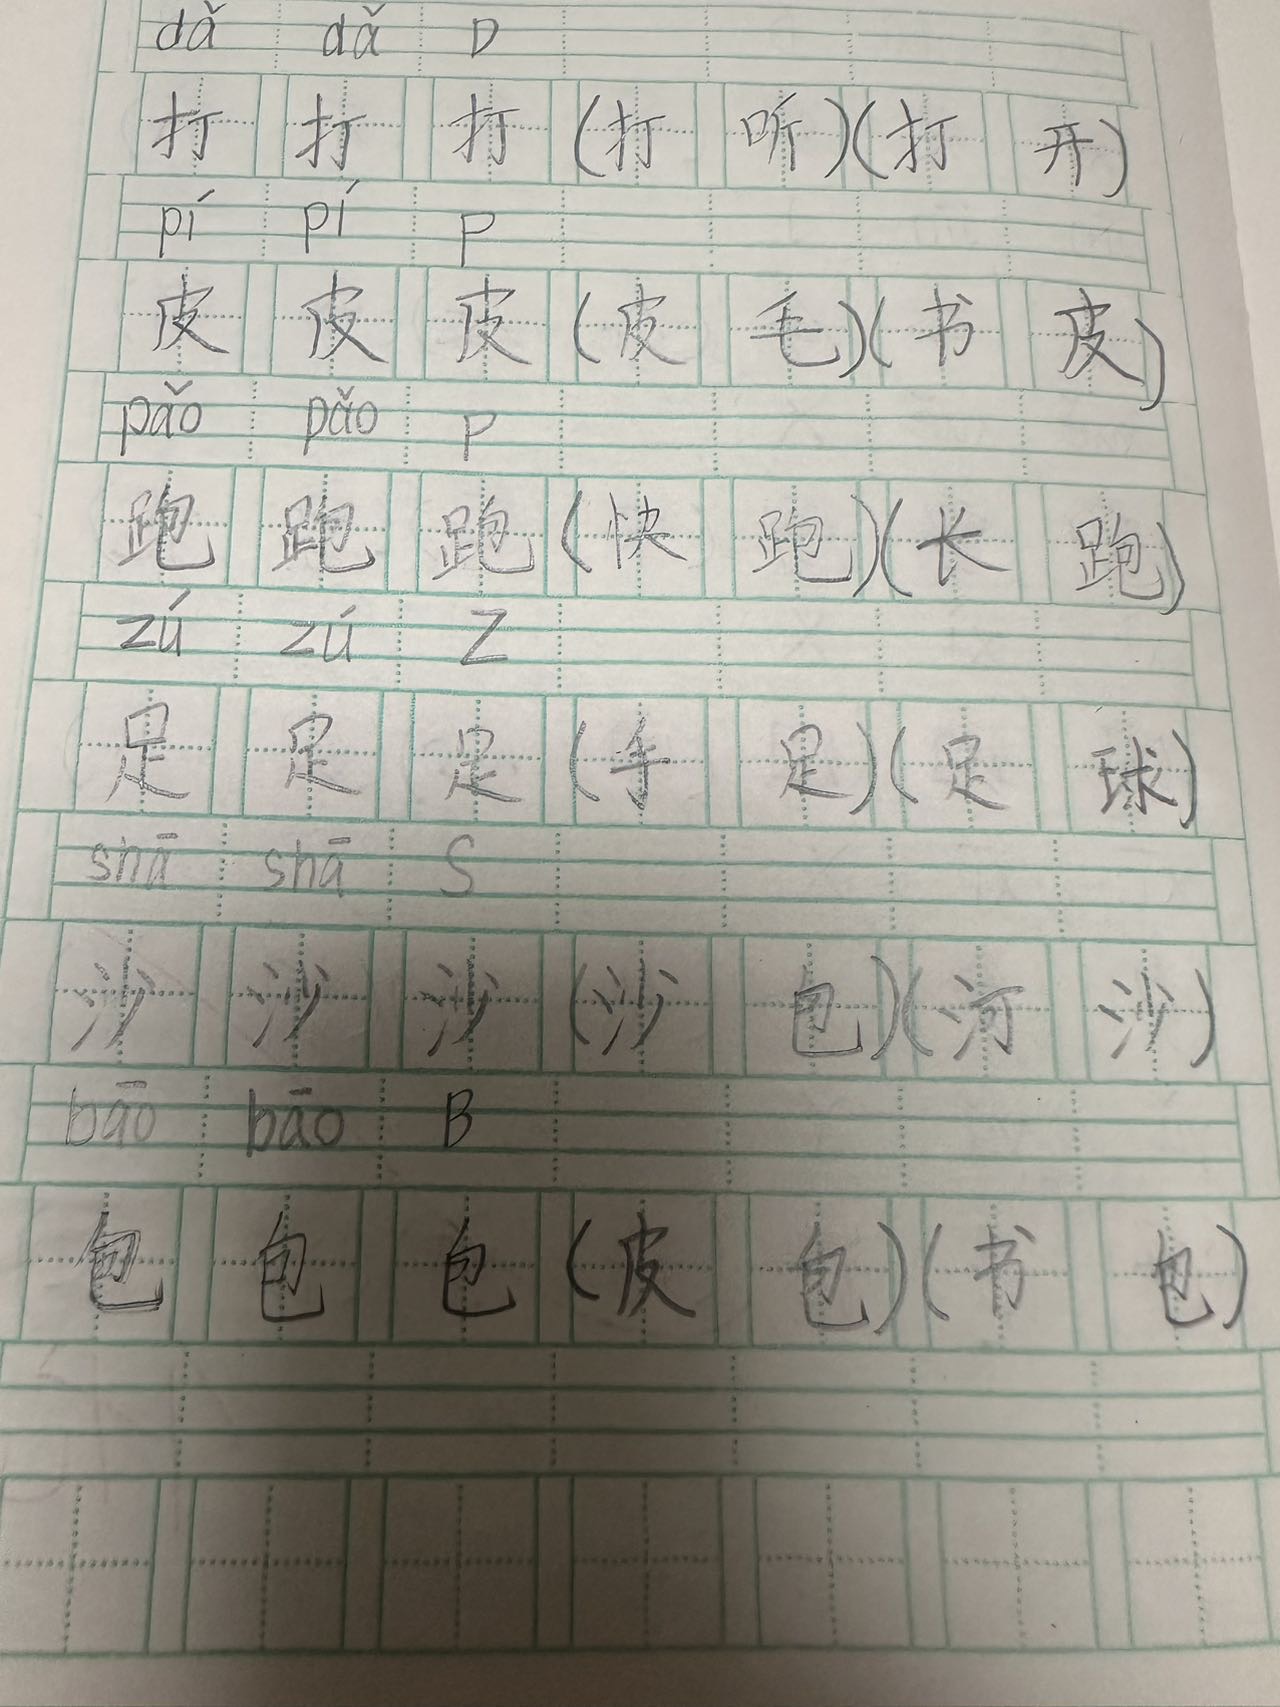 dǎ dǎ D
打 打 打 (打 听)(打 开)
pí pí P
皮 皮 皮 (皮 毛)(书 皮)
pǎo pǎo P
跑 跑 跑 (快 跑)(长 跑)
zú zú Z
足 足 足 (手 足)(足 球)
shā shā S
沙 沙 沙 (沙 包)(河 沙)
bāo bāo B
包 包 包 (皮 包)(书 包)